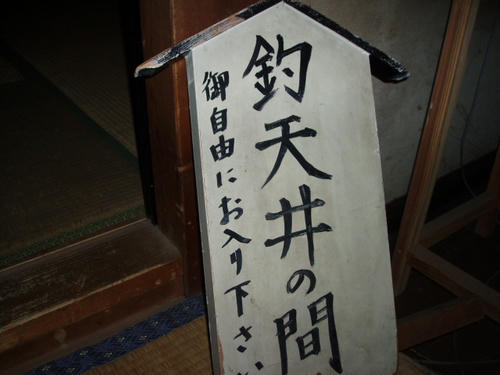 釣天井の間
御自由にお入り下さい